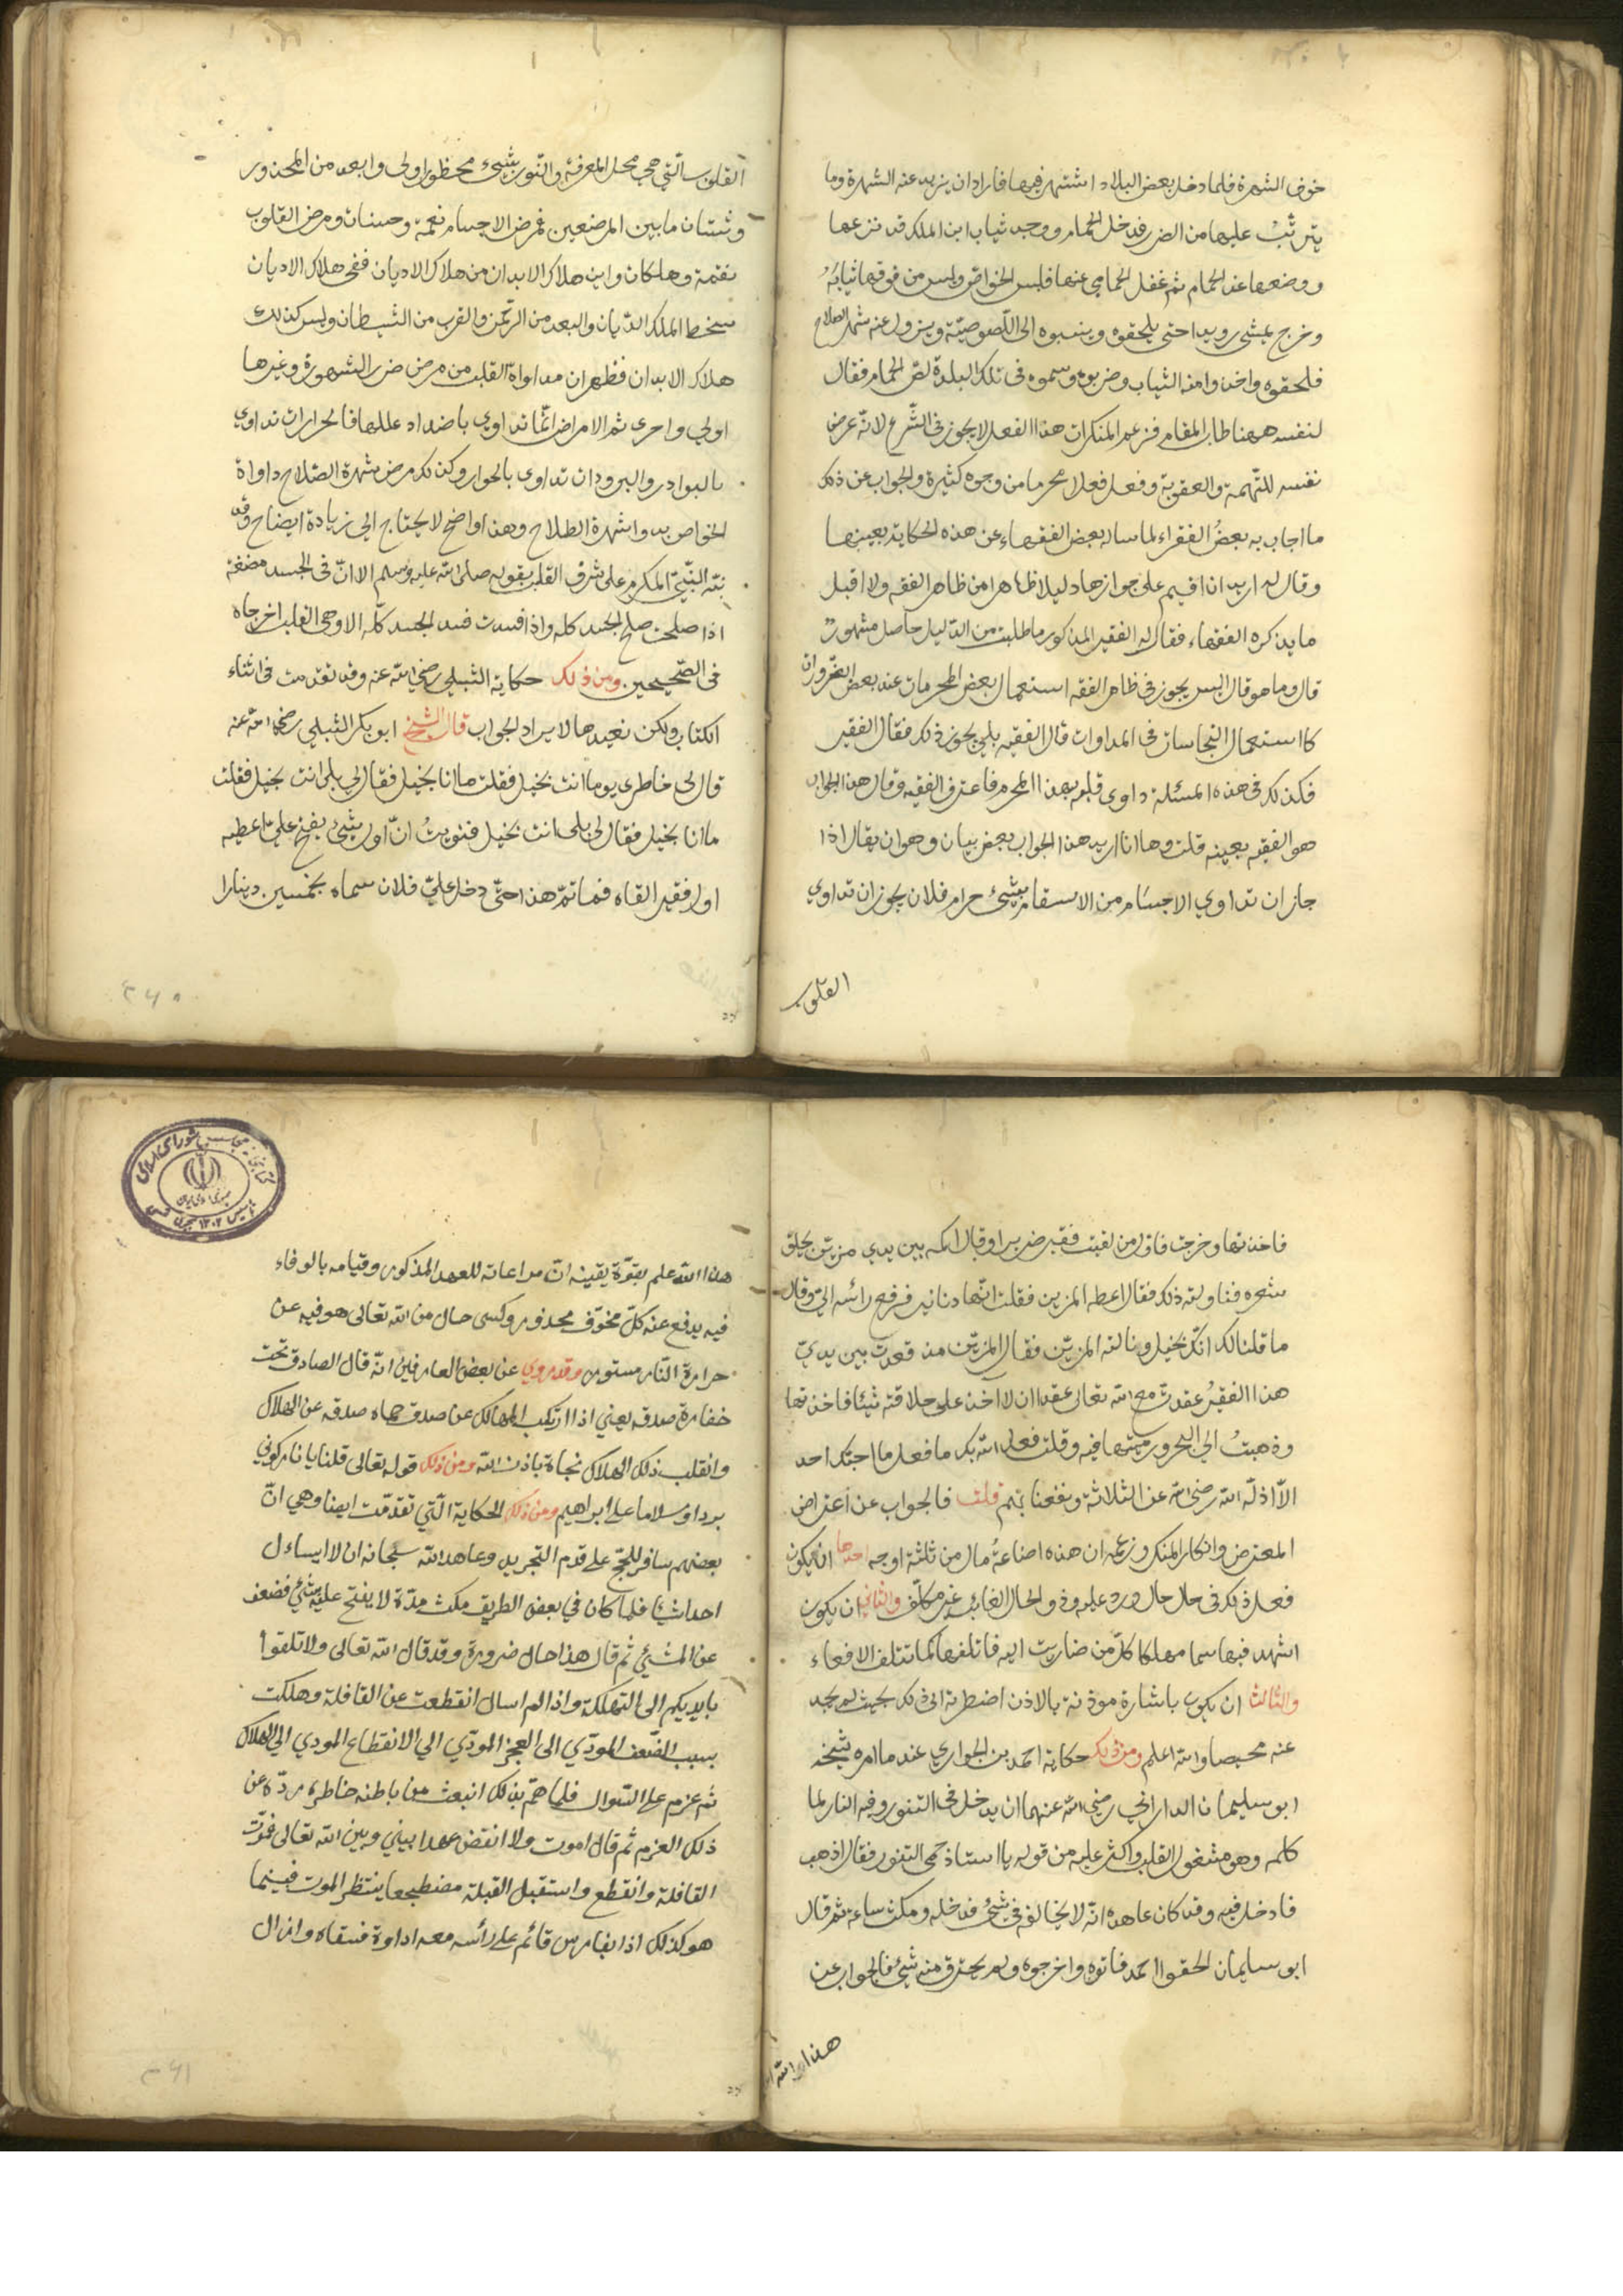 خوف الشهرة فلما دخل بعض البلاد اشتهر فيها فاراد ان يزيد عنه الشهرة وما
يترتب عليها من الضرر فدخل الحمام ووجد ثياب ابن الملك قد نزعها
ووضعها عند الحمام ثم غفل الحمامي عنها فلبس الخواص ولبس من فوقها ثيابه
وخرج يمشي رويدا حتى يلحقوه وينسبوه الى اللصوصية ويزول عنه شهرة الصلاح
فلحقوه واخذوا منه الثياب وضربوه وسموه فى تلك البلدة لص الحمام فقال
لنفسه ههنا طاب المقام فزعم المنكر ان هذا الفعل لا يجوز فى الشرع لانه عرض
نفسه للتهمة والعقوبة وفعل فعلا محرما من وجوه كثيرة والجواب عن ذلك
ما اجاب به بعض الفقراء لما ساله بعض الفقهاء عن هذه الحكاية بعينها
وقال له اريد ان اقيم على جوازها دليلا ظاهرا من ظاهر الفقه ولا اقبل
ما يذكره الفقهاء فقال له الفقير المذكور ما طلبت من الدليل حاصل مشهور
قال وما هو قال اليس يجوز فى ظاهر الفقه استعمال بعض المحرمات عند بعض الضرورات
كاستعمال النجاسات فى المداواة قال الفقيه بلى يجوز ذلك فقال الفقير
فكذلك فى هذه المسئلة داوى قلبه بهذا المحرم فاعترف الفقيه وقال هذا الجواب
هو الفقيه بعينه قلت وها انا اريد هذا الجواب بعض بيان وهو ان يقال اذا
جاز ان تداوي الاجسام من الاسقام بشئ حرام فلان يجوز ان تداوي
القلوب
القلوب التي هي محل المعرفة والنور بشئ محظور اولى وابعد من المحذور
وشتان ما بين المرضين فمرض الاجسام نعمة وحسنات ومرض القلوب
نقمة وهلكات واين هلاك الابدان من هلاك الاديان ففى هلاك الاديان
سخط الملك الديان والبعد من الرحمن والقرب من الشيطان وليس كذلك
هلاك الابدان فظهر ان مداواة القلب من مرض ضرر الشهرة وغيرها
اولي واحرى ثم الامراض انما تداوي باضداد عللها فالحرارات تداوي
بالبوادر والبرودات تداوى بالحوار وكذلك مرض شهرة الصلاح داواة
الخواص بدواء شهرة الطلاح وهذا واضح لا يحتاج الى زيادة ايضاح وقد
نبه النبي المكرم على شرف القلب بقوله صلى الله عليه وسلم الا ان فى الجسد مضغة
اذا صلحت صلح الجسد كله واذا فسدت فسد الجسد كله الا وهى القلب اخرجاه
فى الصحيحين ومن ذلك حكاية الشبلي رضي الله عنه وقد تقدمت فى اثناء
الكتاب ولكن نعيدها لايراد الجواب قال الشيخ ابو بكر الشبلي رضي الله عنه
قال لى خاطرى يوما انت بخيل فقلت ما انا بخيل فقال لي بلى انت بخيل فقلت
ما انا بخيل فقال لى بلى انت بخيل فنويت ان اول شئ يفتح علي اعطيه
اول فقير القاه فما تم هذا حتى دخل علي فلان سماه بخمسين دينارا
فاخذتها وخرجت فاول من لقيت فقير ضريرا وقال اكمه بين يدي مزين يحلق
شعره فناولته ذلك فقال اعطه المزين فقلت انها دنانير فرفع رأسه الي وقال
ما قلنا لك انك بخيل وناولته المزين فقال المزين منذ قعدت بين يدي
هذا الفقير عقدت مع الله تعالى عقدا ان لا اخذ على حلاقته شيئا فاخذتها
وذهبت الى البحر ورميتها فيه وقلت فعل الله بك ما فعل ما احبك احد
الا اذله الله رضي الله عن الثلاثة ونفعنا بهم قلت فالجواب عن اعتراض
المعترض وانكار المنكر وزعمه ان هذه اضاعة مال من ثلثة اوجه احدها ان يكون
فعل ذلك فى حال حال ورد عليه وذو الحال الغائب غير مكلف والثاني ان يكون
اشهد فيها سما مهلكا كل من ضارت اليه فاتلفها كما تتلف الافعاء
والثالث ان يكون باشارة موذنة بالاذن اضطرته الى ذلك بحيث لم يجد
عنه محيصا والله اعلم ومن ذلك حكاية احمد بن الحواري عند ما امره شيخه
ابو سليمان الداراني رضي الله عنهما ان يدخل فى التنور وفيه النار لما
كلمه وهو مشغول القلب واكثر عليه من قوله يا استاذ حمى التنور فقال اذهب
فادخل فيه وقد كان عاهده انه لا يخالفه فى شئ فدخله ومكث ساعة ثم قال
ابو سليمان الحقوا احمد فاتوه واخرجوه ولم يحترق منه شئ فالجواب عن
هذا والله
هذا والله علم بقوة يقينه ان مراعاته للعهد المذكور وقيامه بالوفاء
فيه يدفع عنه كل مخوف محذور وكسى حال من الله تعالى هو فيه عن
حرارة النار مستور وقد روي عن بعض العارفين انه قال الصادق تحت
خفارة صدقه يعني اذا ارتكب المهالك عن صدق حماه صدقه عن الهلاك
وانقلب ذلك الهلاك نجاة باذن الله ومن ذلك قوله تعالى قلنا يا نار كوني
بردا وسلاما على ابراهيم ومن ذلك الحكاية التي تقدمت ايضا وهي ان
بعضهم سافر للحج على قدم التجريد وعاهد الله سبحانه ان لا يساءل
احدا شيئا فلما كان في بعض الطريق مكث مدة لا يفتح عليه بشئ فضعف
عن المشي ثم قال هذا حال ضرورة وقد قال الله تعالى ولا تلقوا
بايديكم الى التهلكة واذا لم اسال انقطعت عن القافلة وهلكت
بسبب الضعف المودي الى العجز المودي الي الانقطاع المودي الي الهلاك
ثم عزم على السوال فلما هم بذلك انبعث من باطنه خاطر رده عن
ذلك العزم ثم قال اموت ولا انقض عهدا بيني وبين الله تعالى فمرت
القافلة وانقطع واستقبل القبلة مضطجعا ينتظر الموت فبينما
هو كذلك اذا بفارس قائم على رأسه معه اداوة فسقاه وازال